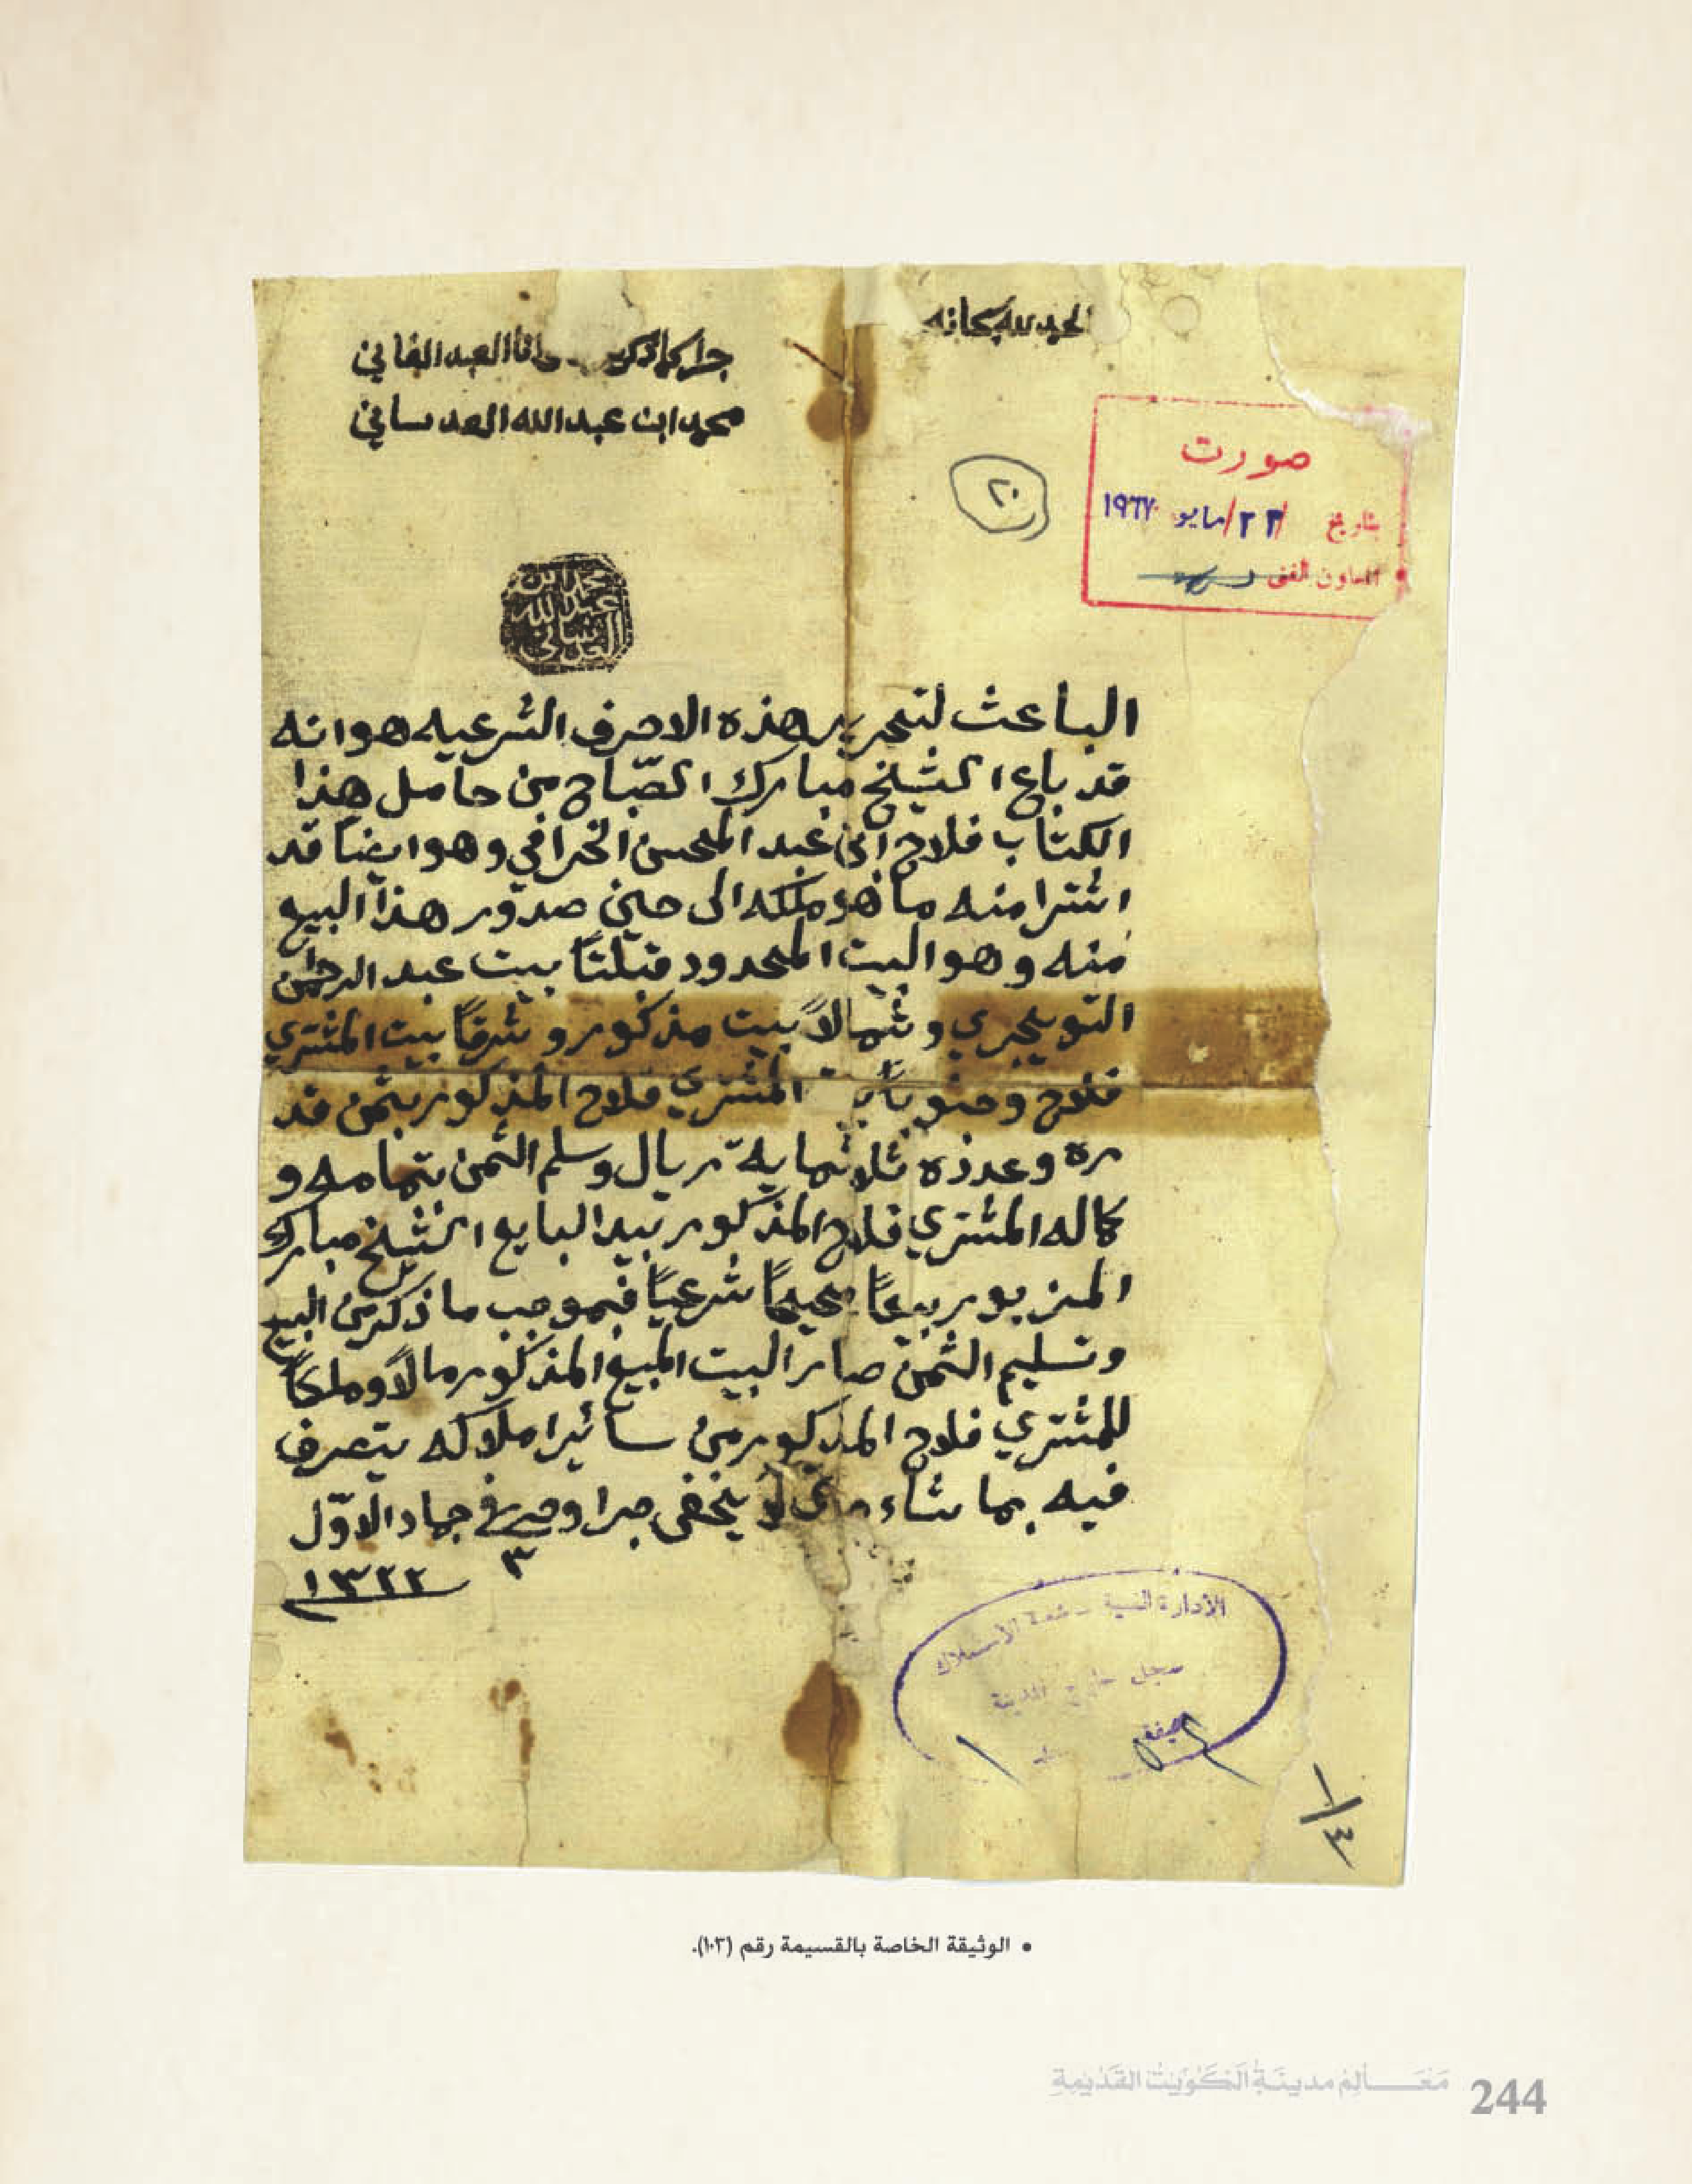 الحمد لله سبحانه
جرا كما ذكر وانا العبد الفاني
محمد ابن عبد الله العدساني
صورت
بتاريخ ٢٢/مايو ١٩٦٧
المعاون الفني
٢٠
محمد ابن
عبد الله
العدساني
الباعث لتحرير هذه الاحرف الشرعيه هو انه
قد باع الشيخ مبارك الصّباح من حامل هذا
الكتاب فلاح ابن عبد المحسن الخرافي وهو ايضا قد
اشترا منه ما هو ملكه الى حين صدور هذا البيع
منه وهو البيت المحدود قبلتاً بيت عبد الرحمن
التويجري وشمالاً بيت مذكور وشرقاً بيت المشتري
فلاح وجنوباً المشتري فلاح المذكور بثمن قد
ره وعدده ثلاثماية ريال وسلم الثمن بتمامه و
كماله المشتري فلاح المذكور بيد البايع الشيخ مبارك
المزبور بيعاً صحيحاً شرعياً فبموجب ما ذكر من البيع
وتسليم الثمن صار البيت المبيع المذكور مالاً وملكاً
للمشتري فلاح المذكور من سائير املاكه يتصرف
فيه بما شاء لا يخفى جرا وحرر في جماد الاوّل
٣ ١٣٢٢
الادارة الفنية - الاستملاك
سجل خارج المدينة
صفقة
١/٤
• الوثيقة الخاصة بالقسيمة رقم (١٠٣).
مَعَالِمُ مدينَةِ الكُوَيْتْ القَدْيمَةِ 244